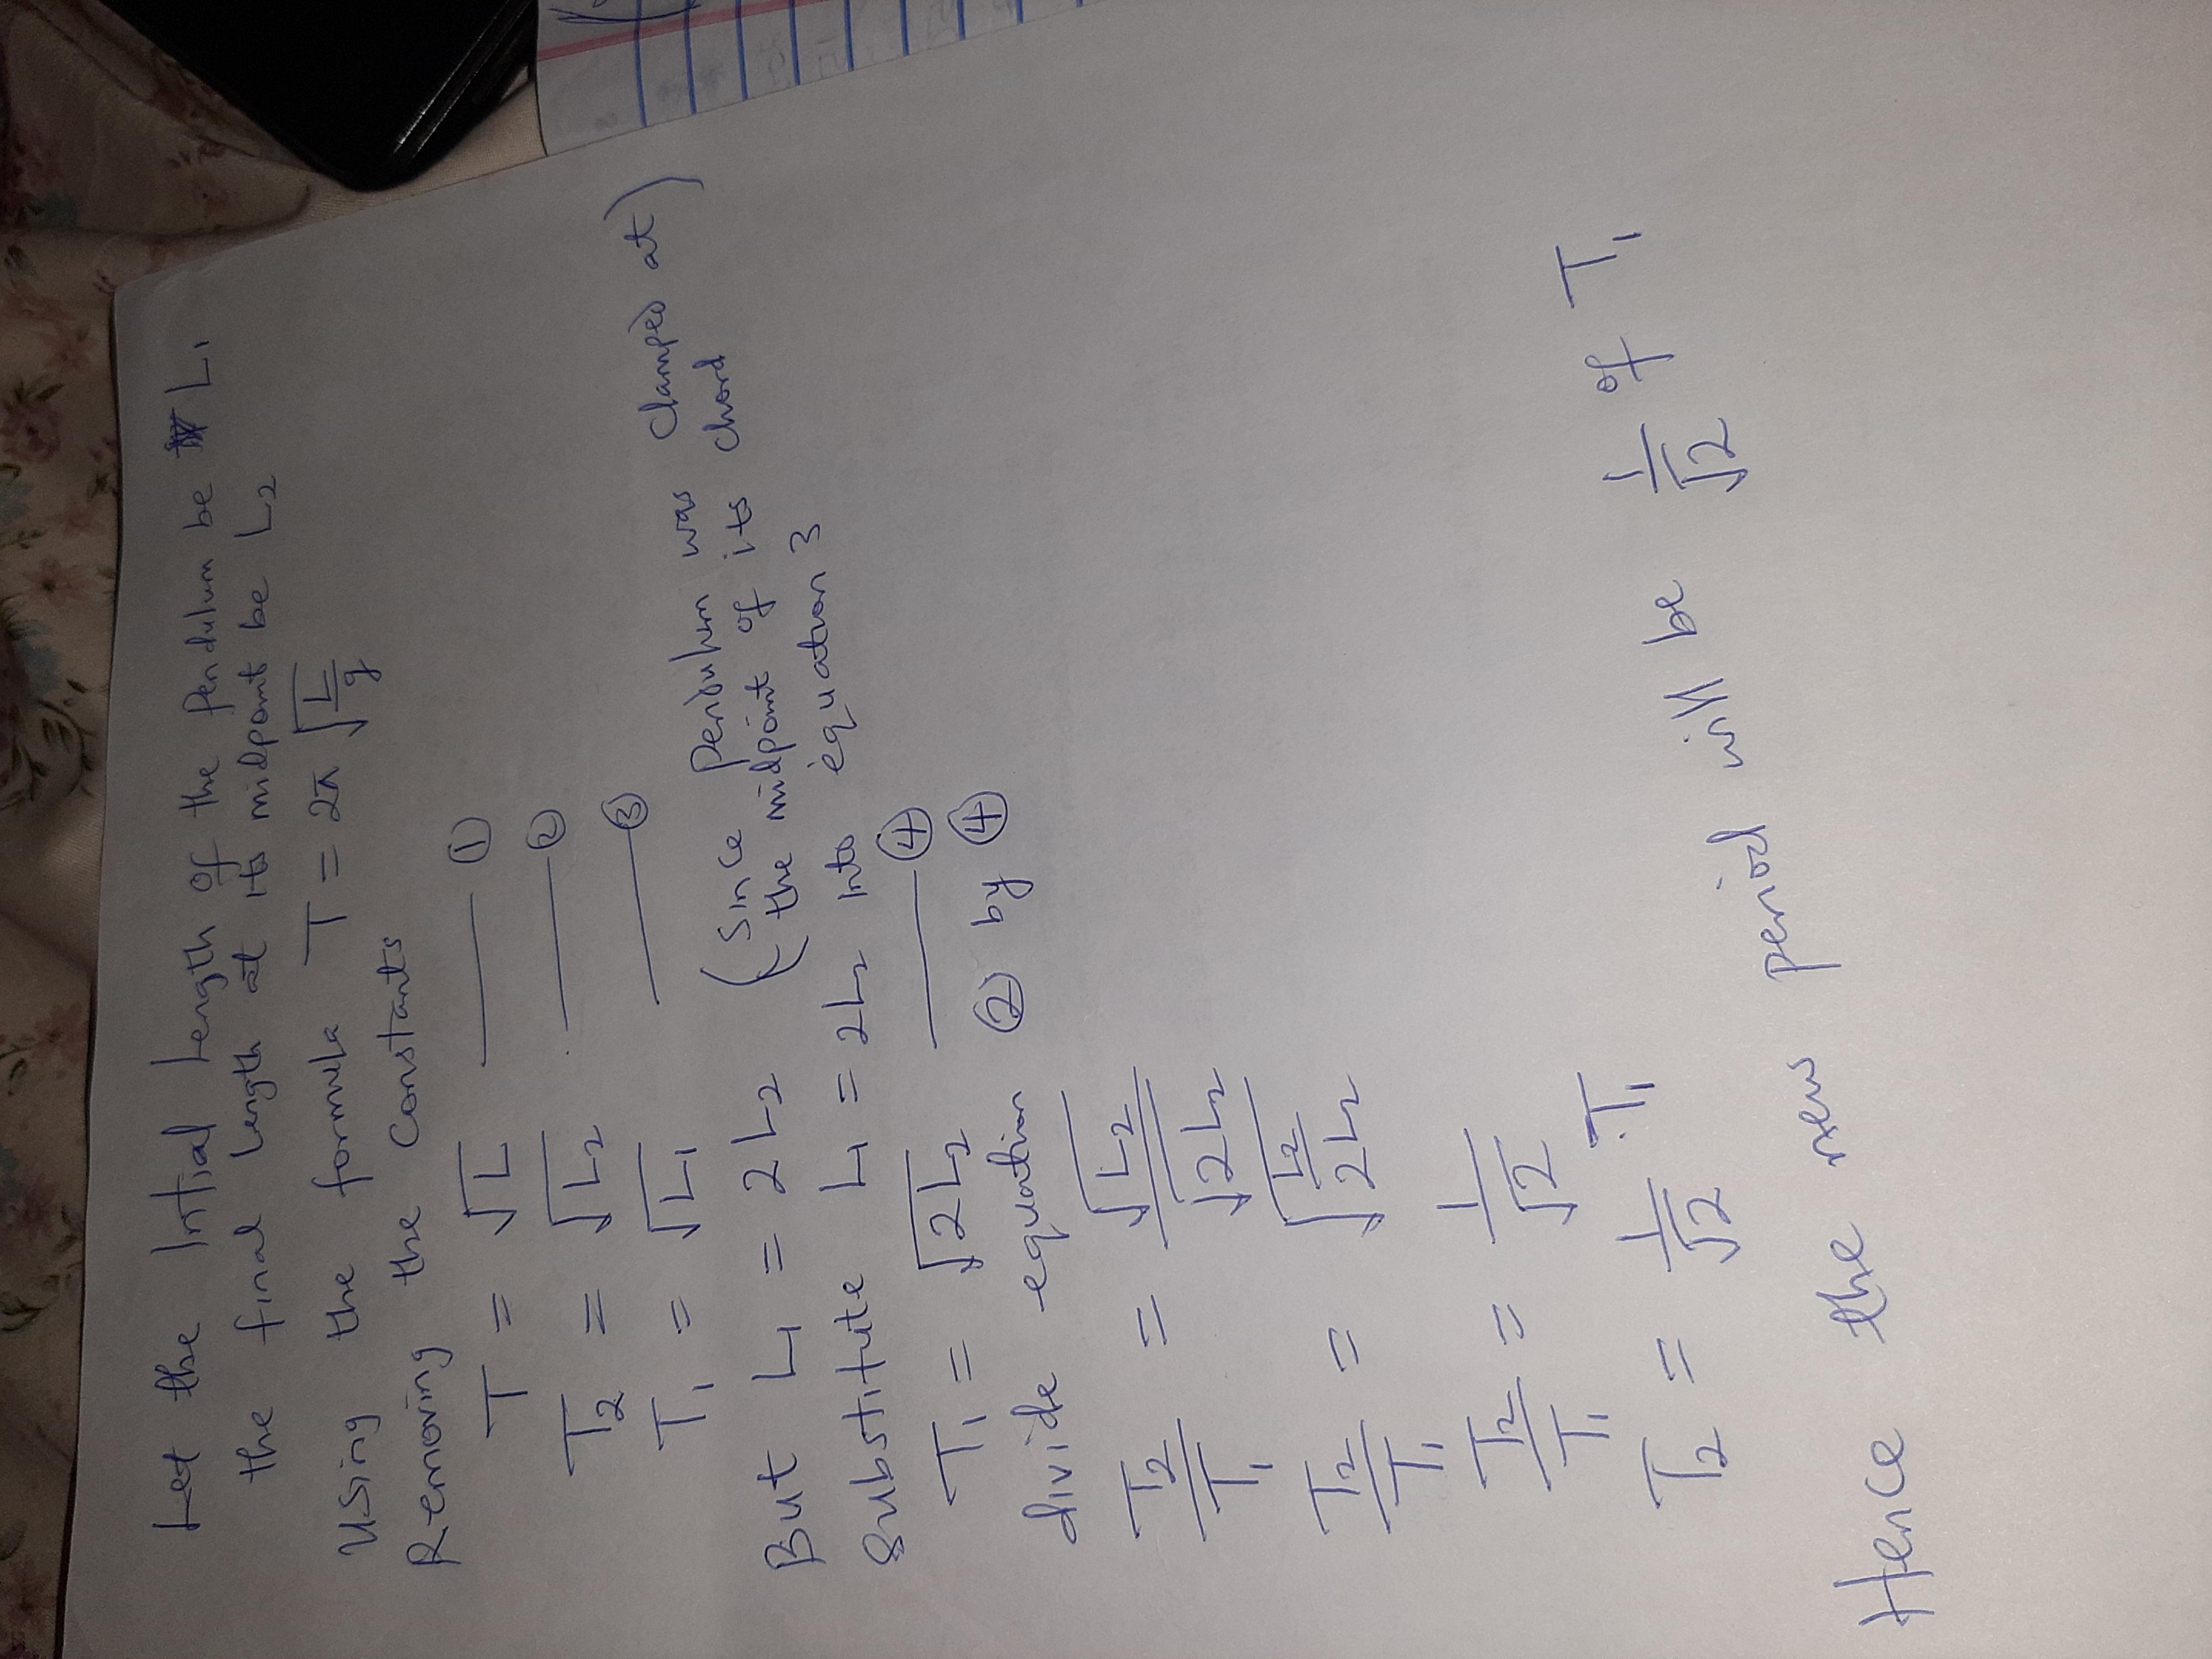 Let the Intial Length of the Pendulum be L₁
the final length at its midpoint be L₂
Using the formula T = 2π √(L/g)
Removing the constants
T = √L ——— ①
T₂ = √L₂ ——— ②
T₁ = √L₁ ——— ③
But L₁ = 2L₂ (Since Pendulum was clamped at
the midpoint of its chord)
Substitute L₁ = 2L₂ into equation 3
T₁ = √2L₂ ——— ④
divide equation ② by ④
T₂/T₁ = √L₂/√2L₂
T₂/T₁ = √(L₂/2L₂)
T₂/T₁ = 1/√2
T₂ = 1/√2 . T₁
Hence the new period will be 1/√2 of T₁